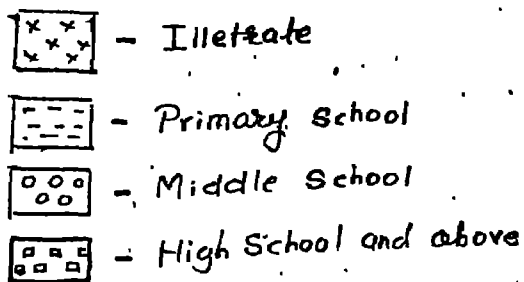 - Illetrate
- Primary School
- Middle School
- High School and above